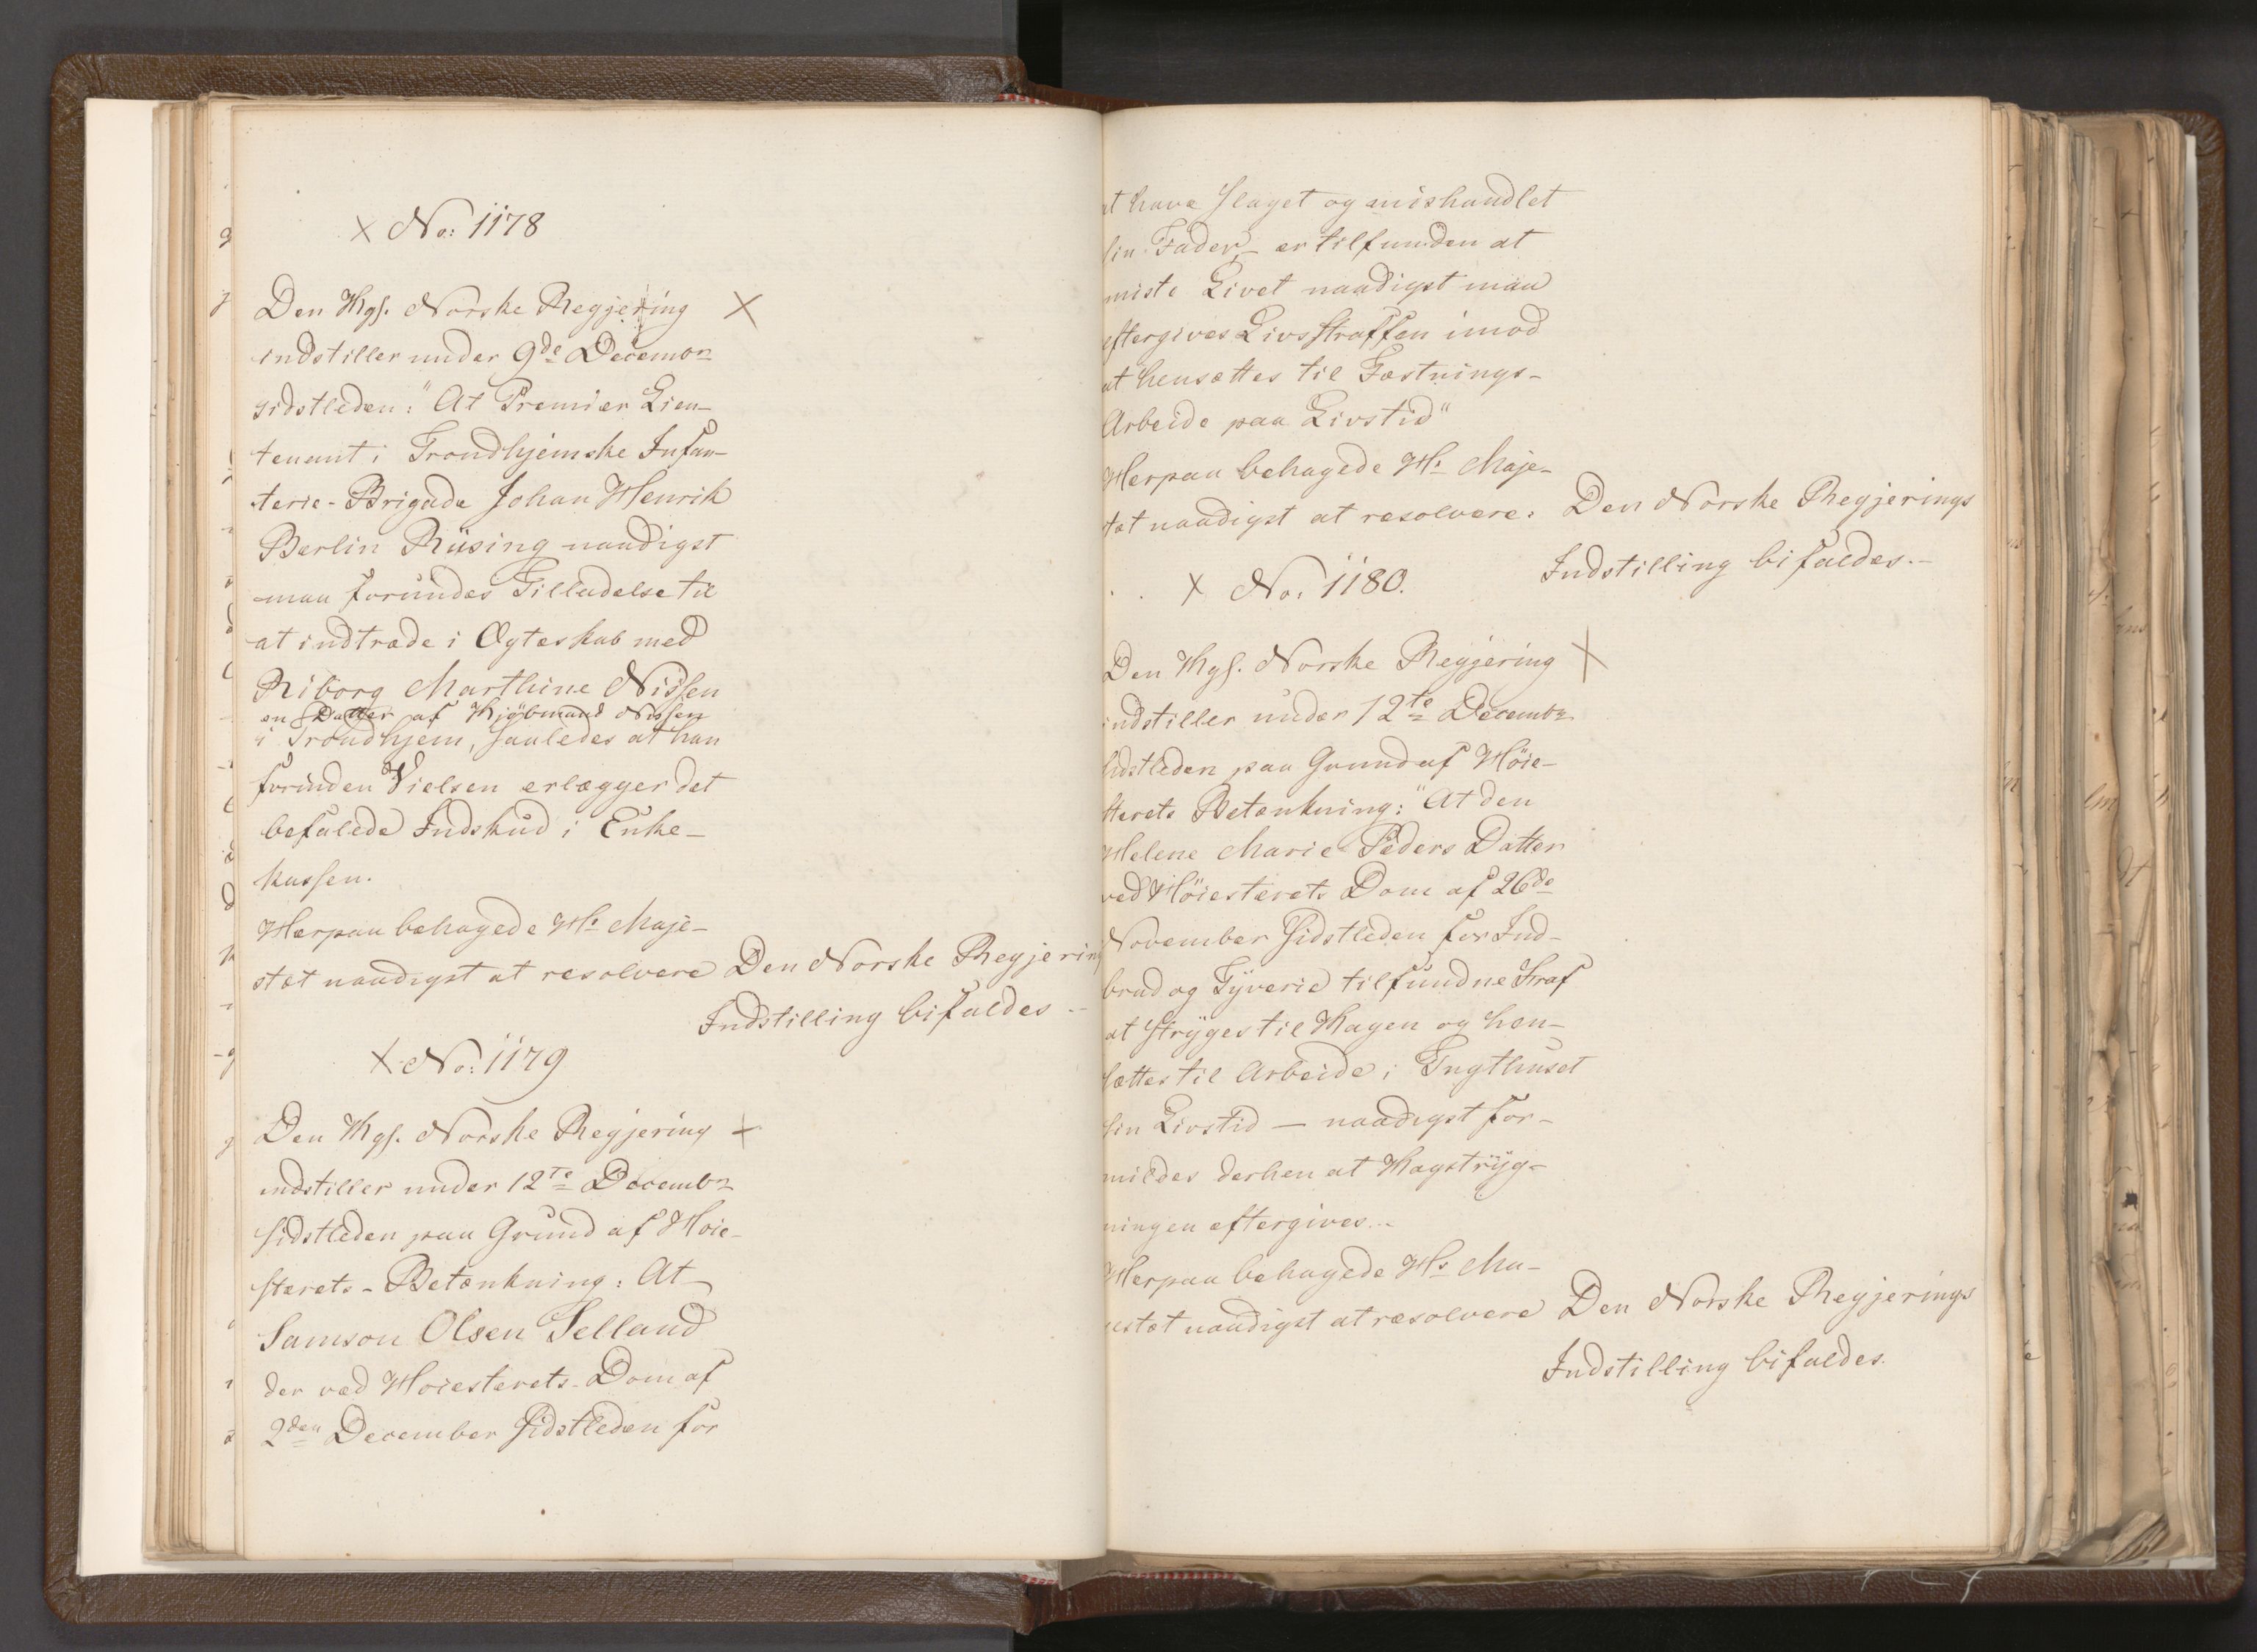 × No: 1178
Den Kgs. Norske Regjering ×
indstiller under 9de Decembr
sidstleden: "At Premier Lieu-
tenant i Trondhjemske Infan-
terie-Brigade Johan Henrik
Berlin Rüsing naadigst
maa forundes Tilladelse til
at indtræde i Ægteskab med
Riborg Marthine Nissen
en Datter af Kjöbmand Nissen
i Trondhjem, saaledes at han
forinden Vielsen erlægger det
befalede Indskud i Enke-
kassen.
Herpaa behagede Hs Maje-
stæt naadigst at resolvere Den Norske Regjering
Indstilling bifaldes -
× No: 1179
Den Kgs. Norske Regjering ×
indstiller under 12te Decembr
sidstleden paa Grund af Høie-
sterets-Betænkning: At
Samson Olsen Selland
der ved Høiesterets-Dom af
2den December sidstleden for
at have slaget og mishandlet
sin Fader - er tilfunden at
miste Livet naadigst maa
eftergives Livsstraffen imod
at hensættes til Fæstnings-
Arbeide paa Livstid"
Herpaa behagede Hs Maje-
stæt naadigst at resolvere: Den Norske Regjerings
Indstilling bifaldes.-
× No. 1180.
Den Kgs. Norske Regjering ×
indstiller under 12te Decembr
sidstleden paa Grund af Höie-
sterets Betænkning: "At den
Helene Marie Peders Datter
ved Höiesterets Dom af 26de
November sidstleden for Ind-
brud og Tyverie tilfundne Straf
at stryges til Kagen og hen-
sættes til Arbeide i Tugthuset
sin Livstid — naadigst for-
mildes derhen at Kagstryg-
ningen eftergives.-
Herpaa behagede Hs Ma-
jestæt naadigst at resolvere Den Norske Regjerings
Indstilling bifaldes.